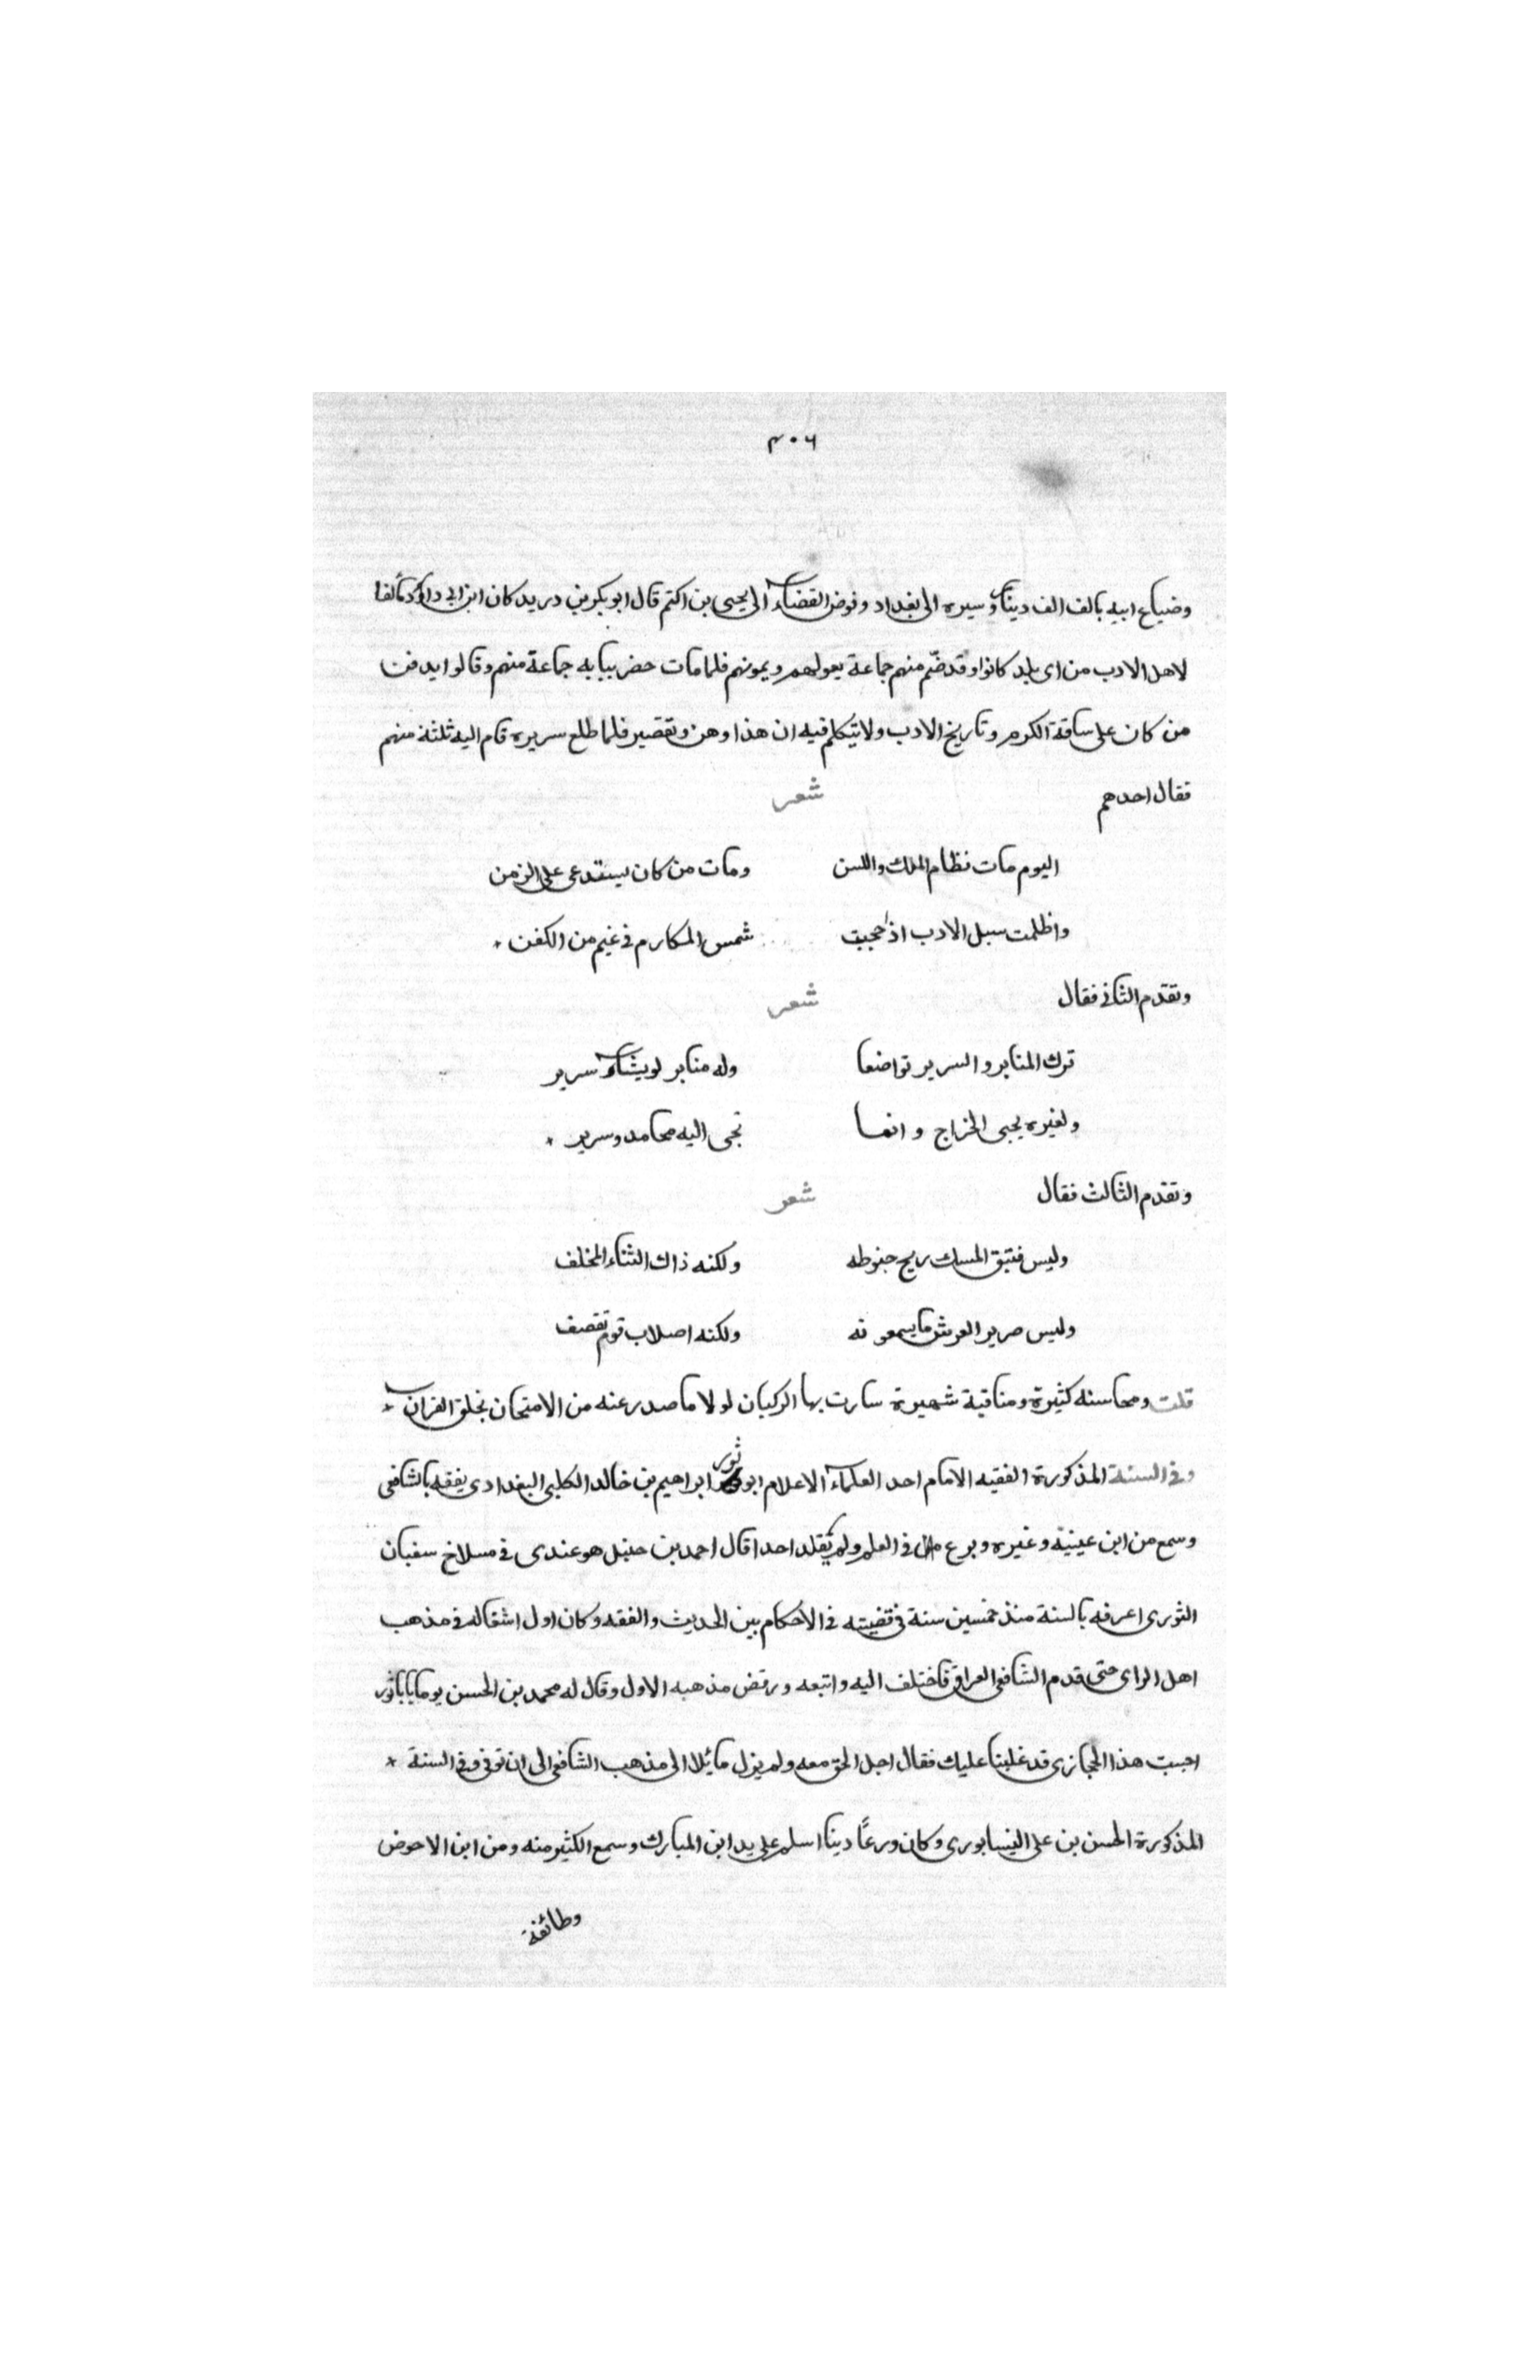 ٣٠٦
وضياع ابيه بالف الف دينار وسيره الى بغداد وفوض القضاء الى يحيى بن اكتم قال ابو بكر بن دريد كان ابن ابى داؤد تألفا
لاهل الادب من اى بلد كانوا وقد ضّم منهم جماعة يعولهم ويمونهم فلما مات حضر ببابه جماعة منهم وقالوا يدفن
من كان على ساقة الكرم وتاريخ الادب ولا يتكلم فيه ان هذا وهن وتقصير فلما طلع سريره قام اليه ثلثة منهم
فقال احدهم شعر
اليوم مات نظام الملك واللسن ومات من كان يستقدعى على الزمن
واظلمت سبل الادب اذ حجبت شمس المكارم فى غيم من الكفن
وتقدم الثانى فقال شعر
ترك المنابر والسرير تواضعا وله منابر لو يشاء سرير
ولغيره يجبى الخراج وانما تجبى اليه محامد وسرير
وتقدم الثالث فقال شعر
وليس فتيق المسك ريح حنوطه ولكنه ذاك الثناء المخلف
وليس صرير العرش ما يسمعونه ولكنه اصلاب قوم تقصف
قلت ومحاسنه كثيرة ومناقبة شهيرة سارت بها الركبان لولا ما صدر عنه من الامتحان بخلق القران
وفى السنة المذكورة الفقيه الامام احد العلماء الاعلام ابو ثور ابراهيم بن خالد الكلبى البغدادى يفقه بالشافعى
وسمع من ابن عيينة وغيره وبرع فى العلم ولم يقلد احدا قال احمد بن حنبل هو عندى فى مسلاخ سفيان
الثورى اعرفه بالسنة منذ خمسين سنة فى قضيته فى الاحكام بين الحديث والفقه وكان اول اشتغاله فى مذهب
اهل الراى حتى قدم الشافعى العراق فاختلف اليه واتبعه ورفض مذهبه الاول وقال له محمد بن الحسن يوما يا باثور
احسبت هذا الحجازى قد غلبنا عليك فقال اجل الحق معه ولم يزل مائلا الى مذهب الشافعى الى ان توفى وفى السنة
المذكورة الحسن بن على النيسابورى وكان ورعًا دينا اسلم على يد ابن المبارك وسمع الكثير منه ومن ابن الاحوض
وطائفة